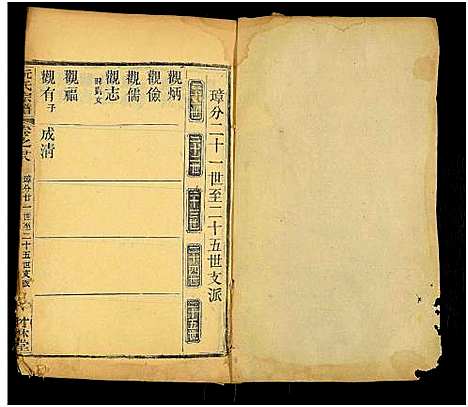 璋分二十一世至二十五世支派
二十一世
二十二世
二十三世
二十四世
二十五世
觀炳
觀儉
觀儒
觀志
觀福
觀有子 成清
阮氏宗譜
卷之
璋分廿一世至二十五世支派
竹林堂